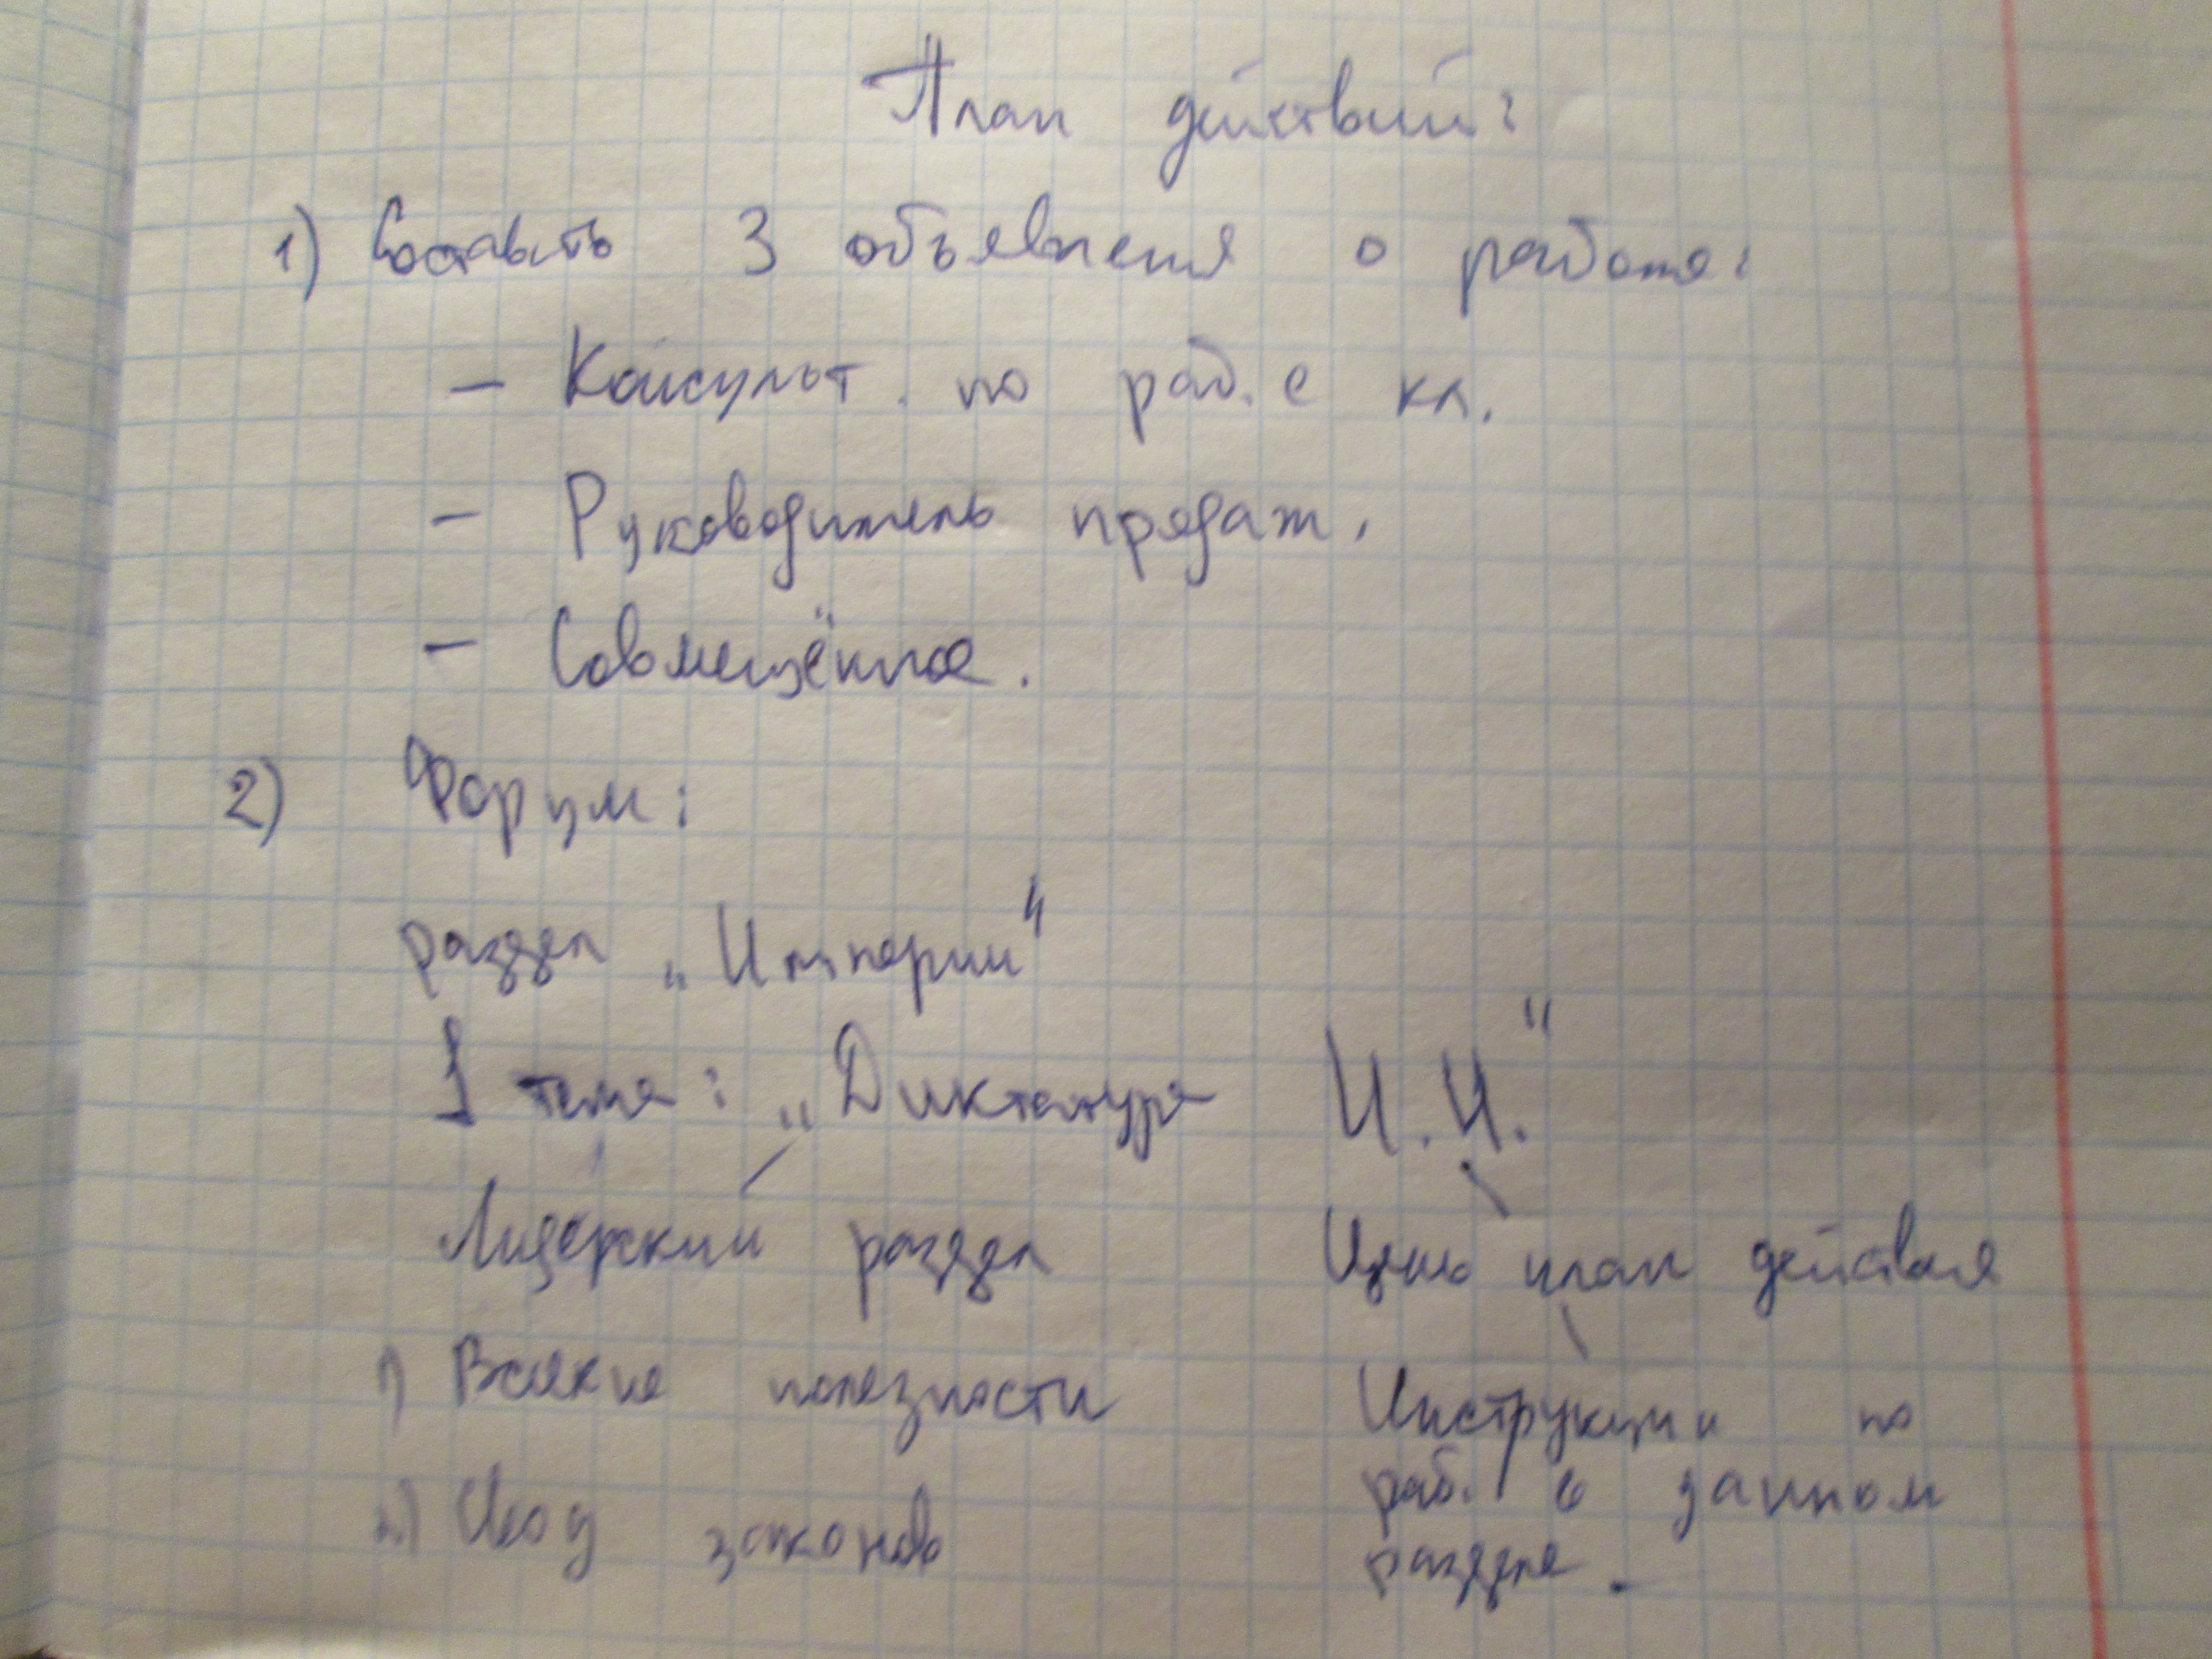 План действий:
1) Составить 3 объявления о работе:
- Консульт. по раб. с кл.
- Руководитель продаж.
- Совмещённое.
2) Форум:
раздел „Империи“
1 тема: „Диктатура И.И.“
Лидерский раздел
1) Всякие полезности
2) Свод законов
Цель план действия
Инструкции по
раб. в данном
разделе.